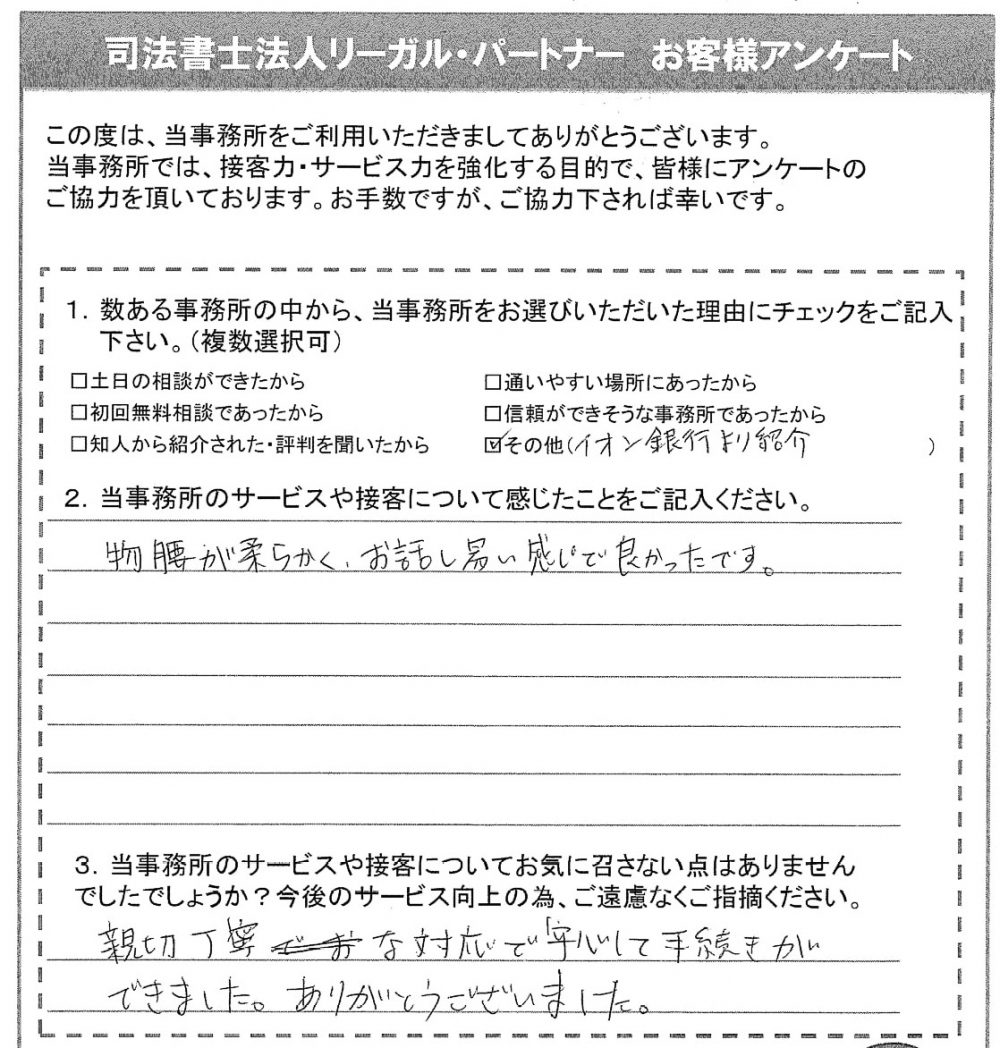 司法書士法人リーガル・パートナー　お客様アンケート
この度は、当事務所をご利用いただきましてありがとうございます。
当事務所では、接客力・サービス力を強化する目的で、皆様にアンケートの
ご協力を頂いております。お手数ですが、ご協力下されば幸いです。
1. 数ある事務所の中から、当事務所をお選びいただいた理由にチェックをご記入
下さい。（複数選択可）
□土日の相談ができたから　□通いやすい場所にあったから
□初回無料相談であったから　□信頼ができそうな事務所であったから
□知人から紹介された・評判を聞いたから　☑その他（イオン銀行より紹介　）
2. 当事務所のサービスや接客について感じたことをご記入ください。
物腰が柔らかく、お話し易い感じで良かったです。
3. 当事務所のサービスや接客についてお気に召さない点はありません
でしたでしょうか？今後のサービス向上の為、ご遠慮なくご指摘ください。
親切丁寧な対応で安心して手続きが
できました。ありがとうございました。